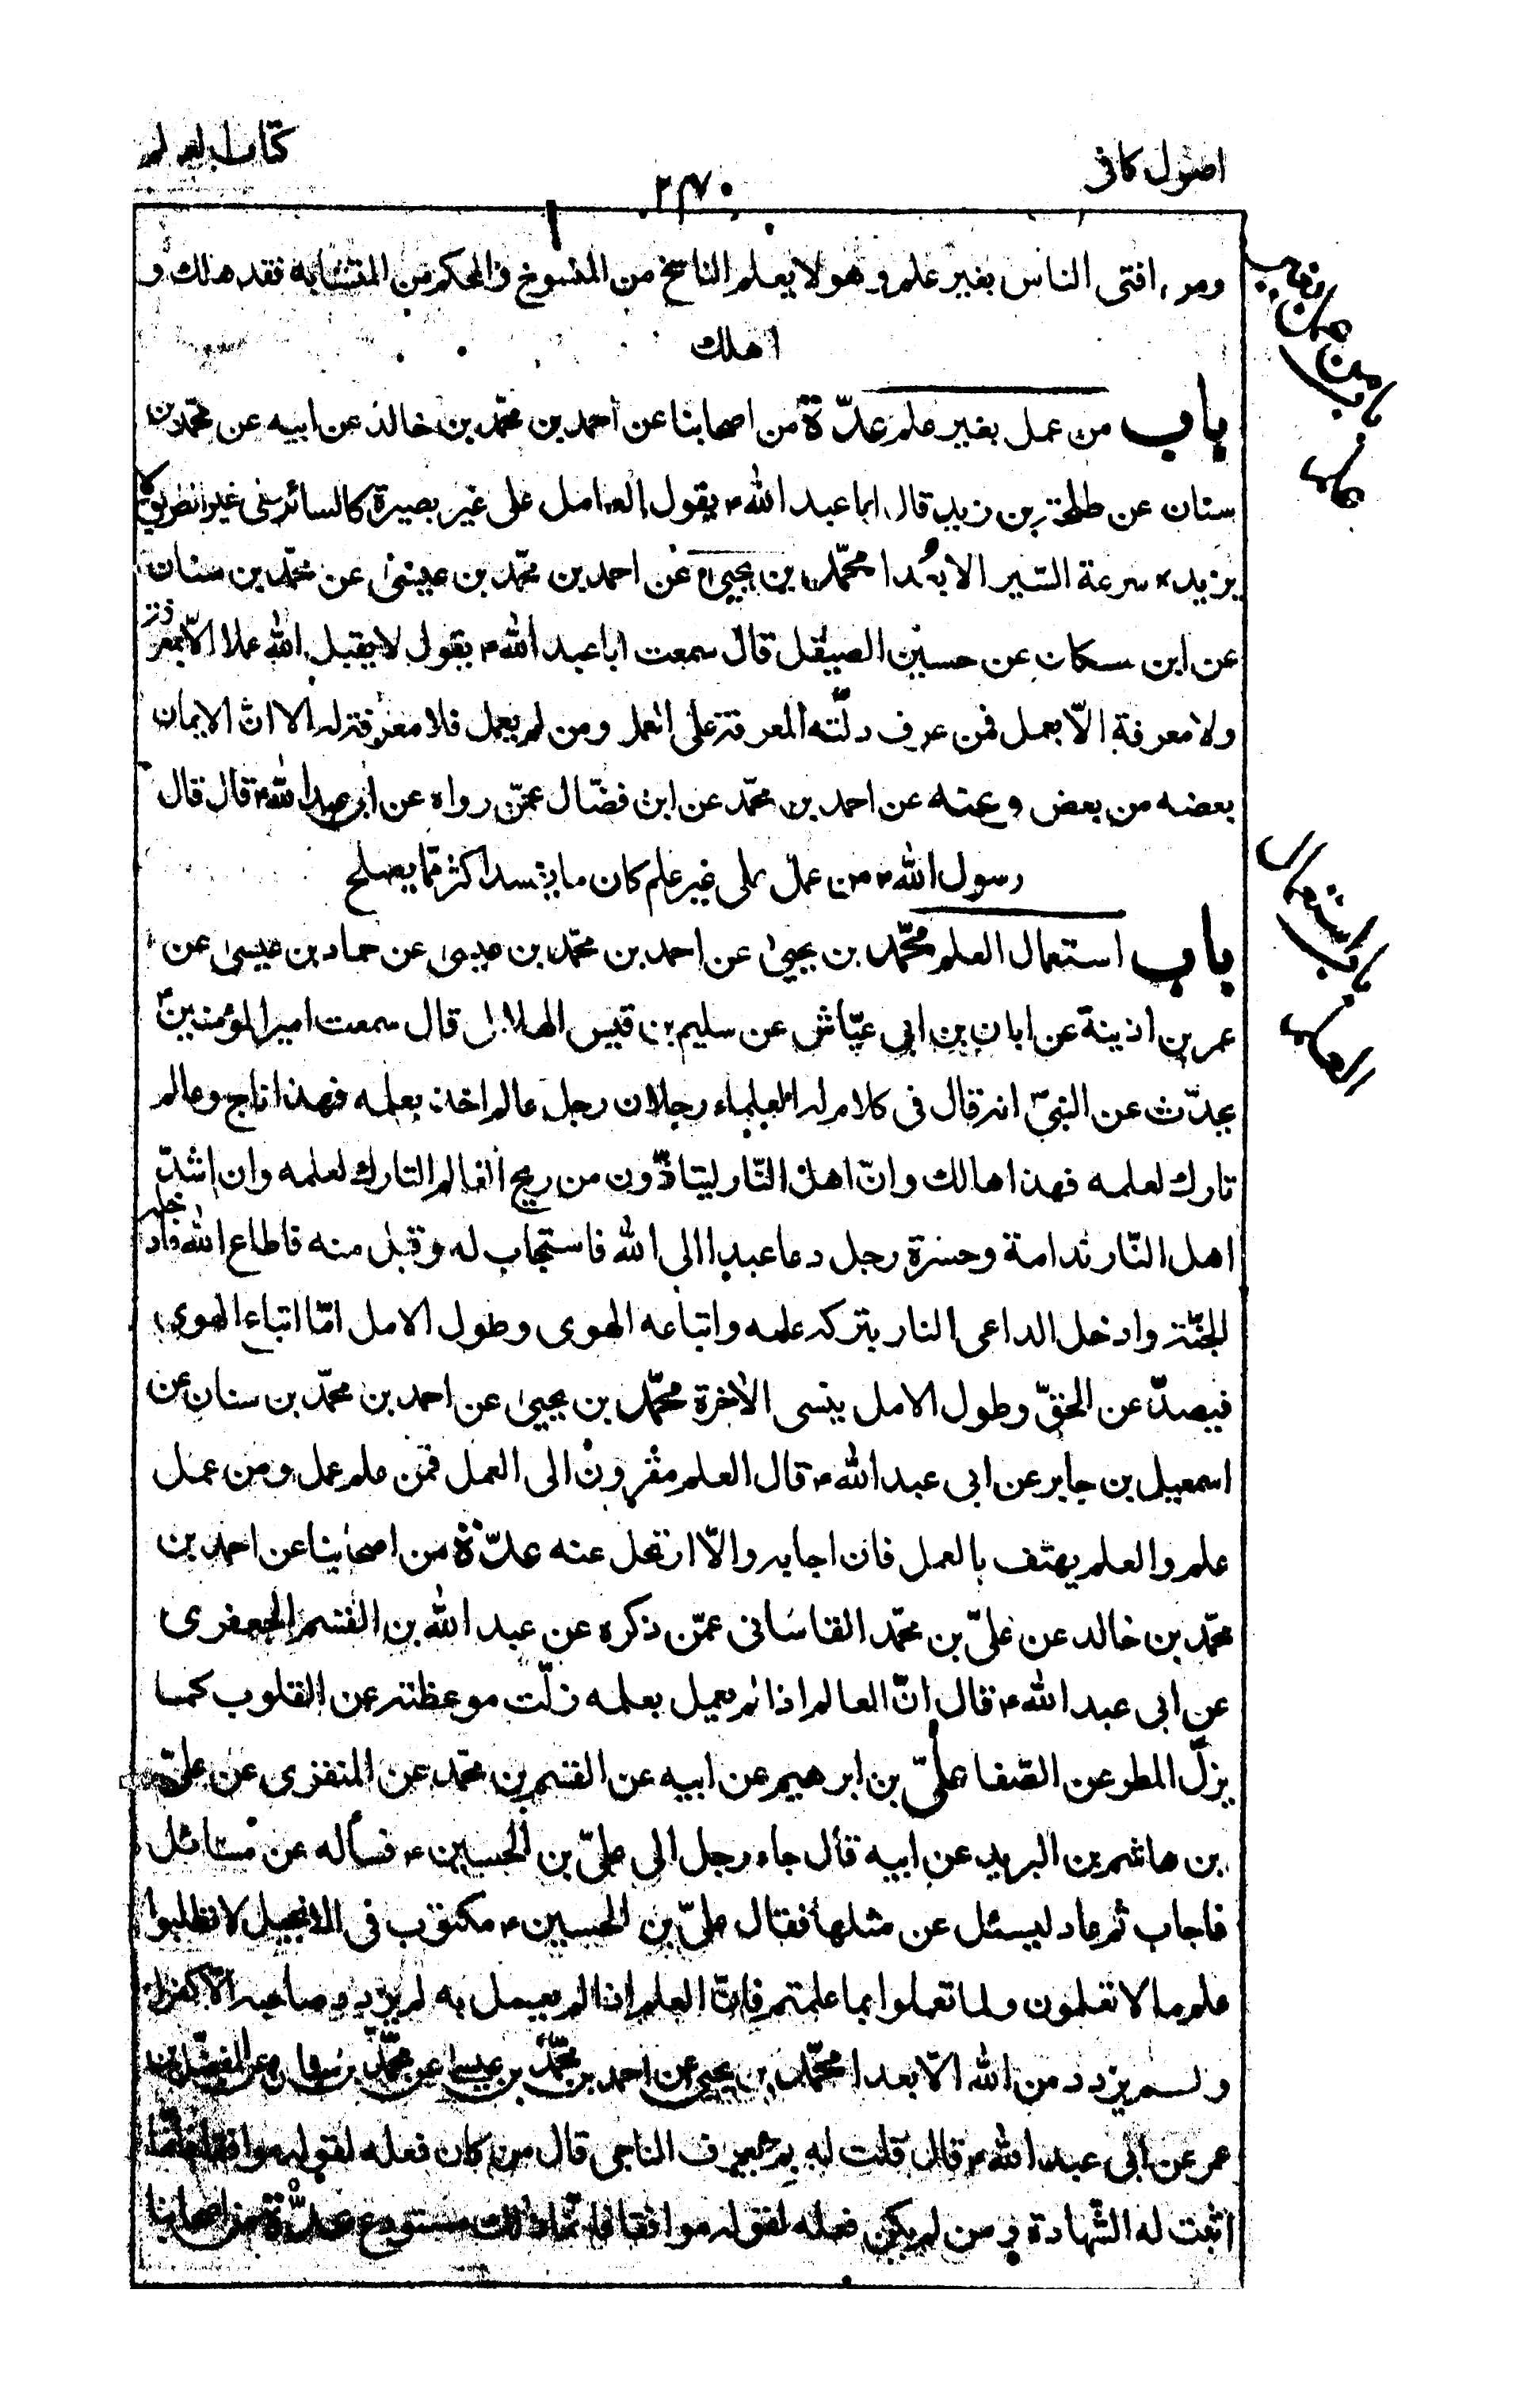 اصول كافى
كتاب العلم
ومن افتى الناس بغير علم وهو لا يعلم الناسخ من المنسوخ والمحكم من المتشابه فقد هلك و
اهلك
باب من عمل بغير علم عدّة من اصحابنا عن احمد بن محمّد بن خالد عن ابيه عن محمّد بن
سنان عن طلحة بن زيد قال ابا عبد الله ع يقول العامل على غير بصيرة كالسائر على غير الطريق لا
يزيده سرعة السّير الا بعدا محمّد بن يحيى عن احمد بن محمّد بن عيسى عن محمّد بن سنان
عن ابن مسكان عن حسين الصيقل قال سمعت ابا عبد الله ع يقول لا يقبل الله عملا الّا بمعرفة
ولا معرفة الّا بعمل فمن عرف دلّته المعرفة على العمل ومن لم يعمل فلا معرفة له الا ان الايمان
بعضه من بعض وعنه عن احمد بن محمّد عن ابن فضّال عمّن رواه عن ابى عبد الله ع قال قال
رسول الله ص من عمل على غير علم كان ما يفسد اكثر ممّا يصلح
باب استعمال العلم محمّد بن يحيى عن احمد بن محمّد بن عيسى عن حماد بن عيسى عن
عمر بن اذينة عن ابان بن ابى عيّاش عن سليم بن قيس الهلالى قال سمعت امير المؤمنين ع
يحدّث عن النبىّ انه قال فى كلام له العلماء رجلان رجل عالم اخذ بعلمه فهذا ناج وعالم
تارك لعلمه فهذا هالك وانّ اهل النّار ليتاذّون من ريح العالم التارك لعلمه وان اشدّ
اهل النّار ندامة وحسرة رجل دعا عبدا الى الله فاستجاب له وقبل منه فاطاع الله فادخله
الجنّة وادخل الداعى النار بتركه علمه واتباعه الهوى وطول الامل امّا اتباع الهوى
فيصدّ عن الحقّ وطول الامل ينسى الاخرة محمّد بن يحيى عن احمد بن محمّد بن سنان عن
اسمعيل بن جابر عن ابى عبد الله ع قال العلم مقرون الى العمل فمن علم عمل ومن عمل
علم والعلم يهتف بالعمل فان اجابه والّا ارتحل عنه عدّة من اصحابنا عن احمد بن
محمّد بن خالد عن علىّ بن محمّد القاسانى عمّن ذكره عن عبد الله بن القسم الجعفرى
عن ابى عبد الله ع قال انّ العالم اذا لم يعمل بعلمه زلّت موعظته عن القلوب كما
يزلّ المطر عن الصّفا علىّ بن ابرهيم عن ابيه عن القسم بن محمّد عن المنقرى عن علىّ
بن هاشم بن البريد عن ابيه قال جاء رجل الى علىّ بن الحسين ع فسأله عن مسائل
فاجاب ثم عاد ليسئل عن مثلها فقال علىّ بن الحسين ع مكتوب فى الانجيل لا تطلبوا
علم ما لا تعلمون ولما تعملوا بما علمتم فانّ العلم اذا لم يعمل به لم يزدد صاحبه الّا كفرا
ولم يزدد من الله الّا بعدا محمّد بن يحيى عن احمد بن محمّد بن عيسى عن محمّد بن سنان عن المفضّل بن
عمر عن ابى عبد الله ع قال قلت له بم يعرف الناجى قال من كان فعله لقوله موافقا فانّما
اثبت له الشّهادة و من لم يكن فعله لقوله موافقا فانّما ذلك مستودع عدّة من اصحابنا
باب من عمل بغير
علم
باب استعمال
العلم